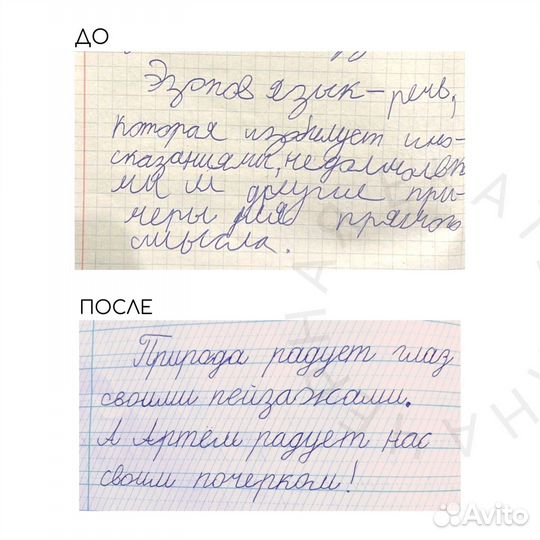 ДО
Эзопов язык – речь,
которая изобилует ино-
сказаниями, недомолвк
мы и другие при-
меры для прямого
смысла.
ПОСЛЕ
Природа радует глаз
своими пейзажами.
А Артём радует нас
своим почерком!
Avito